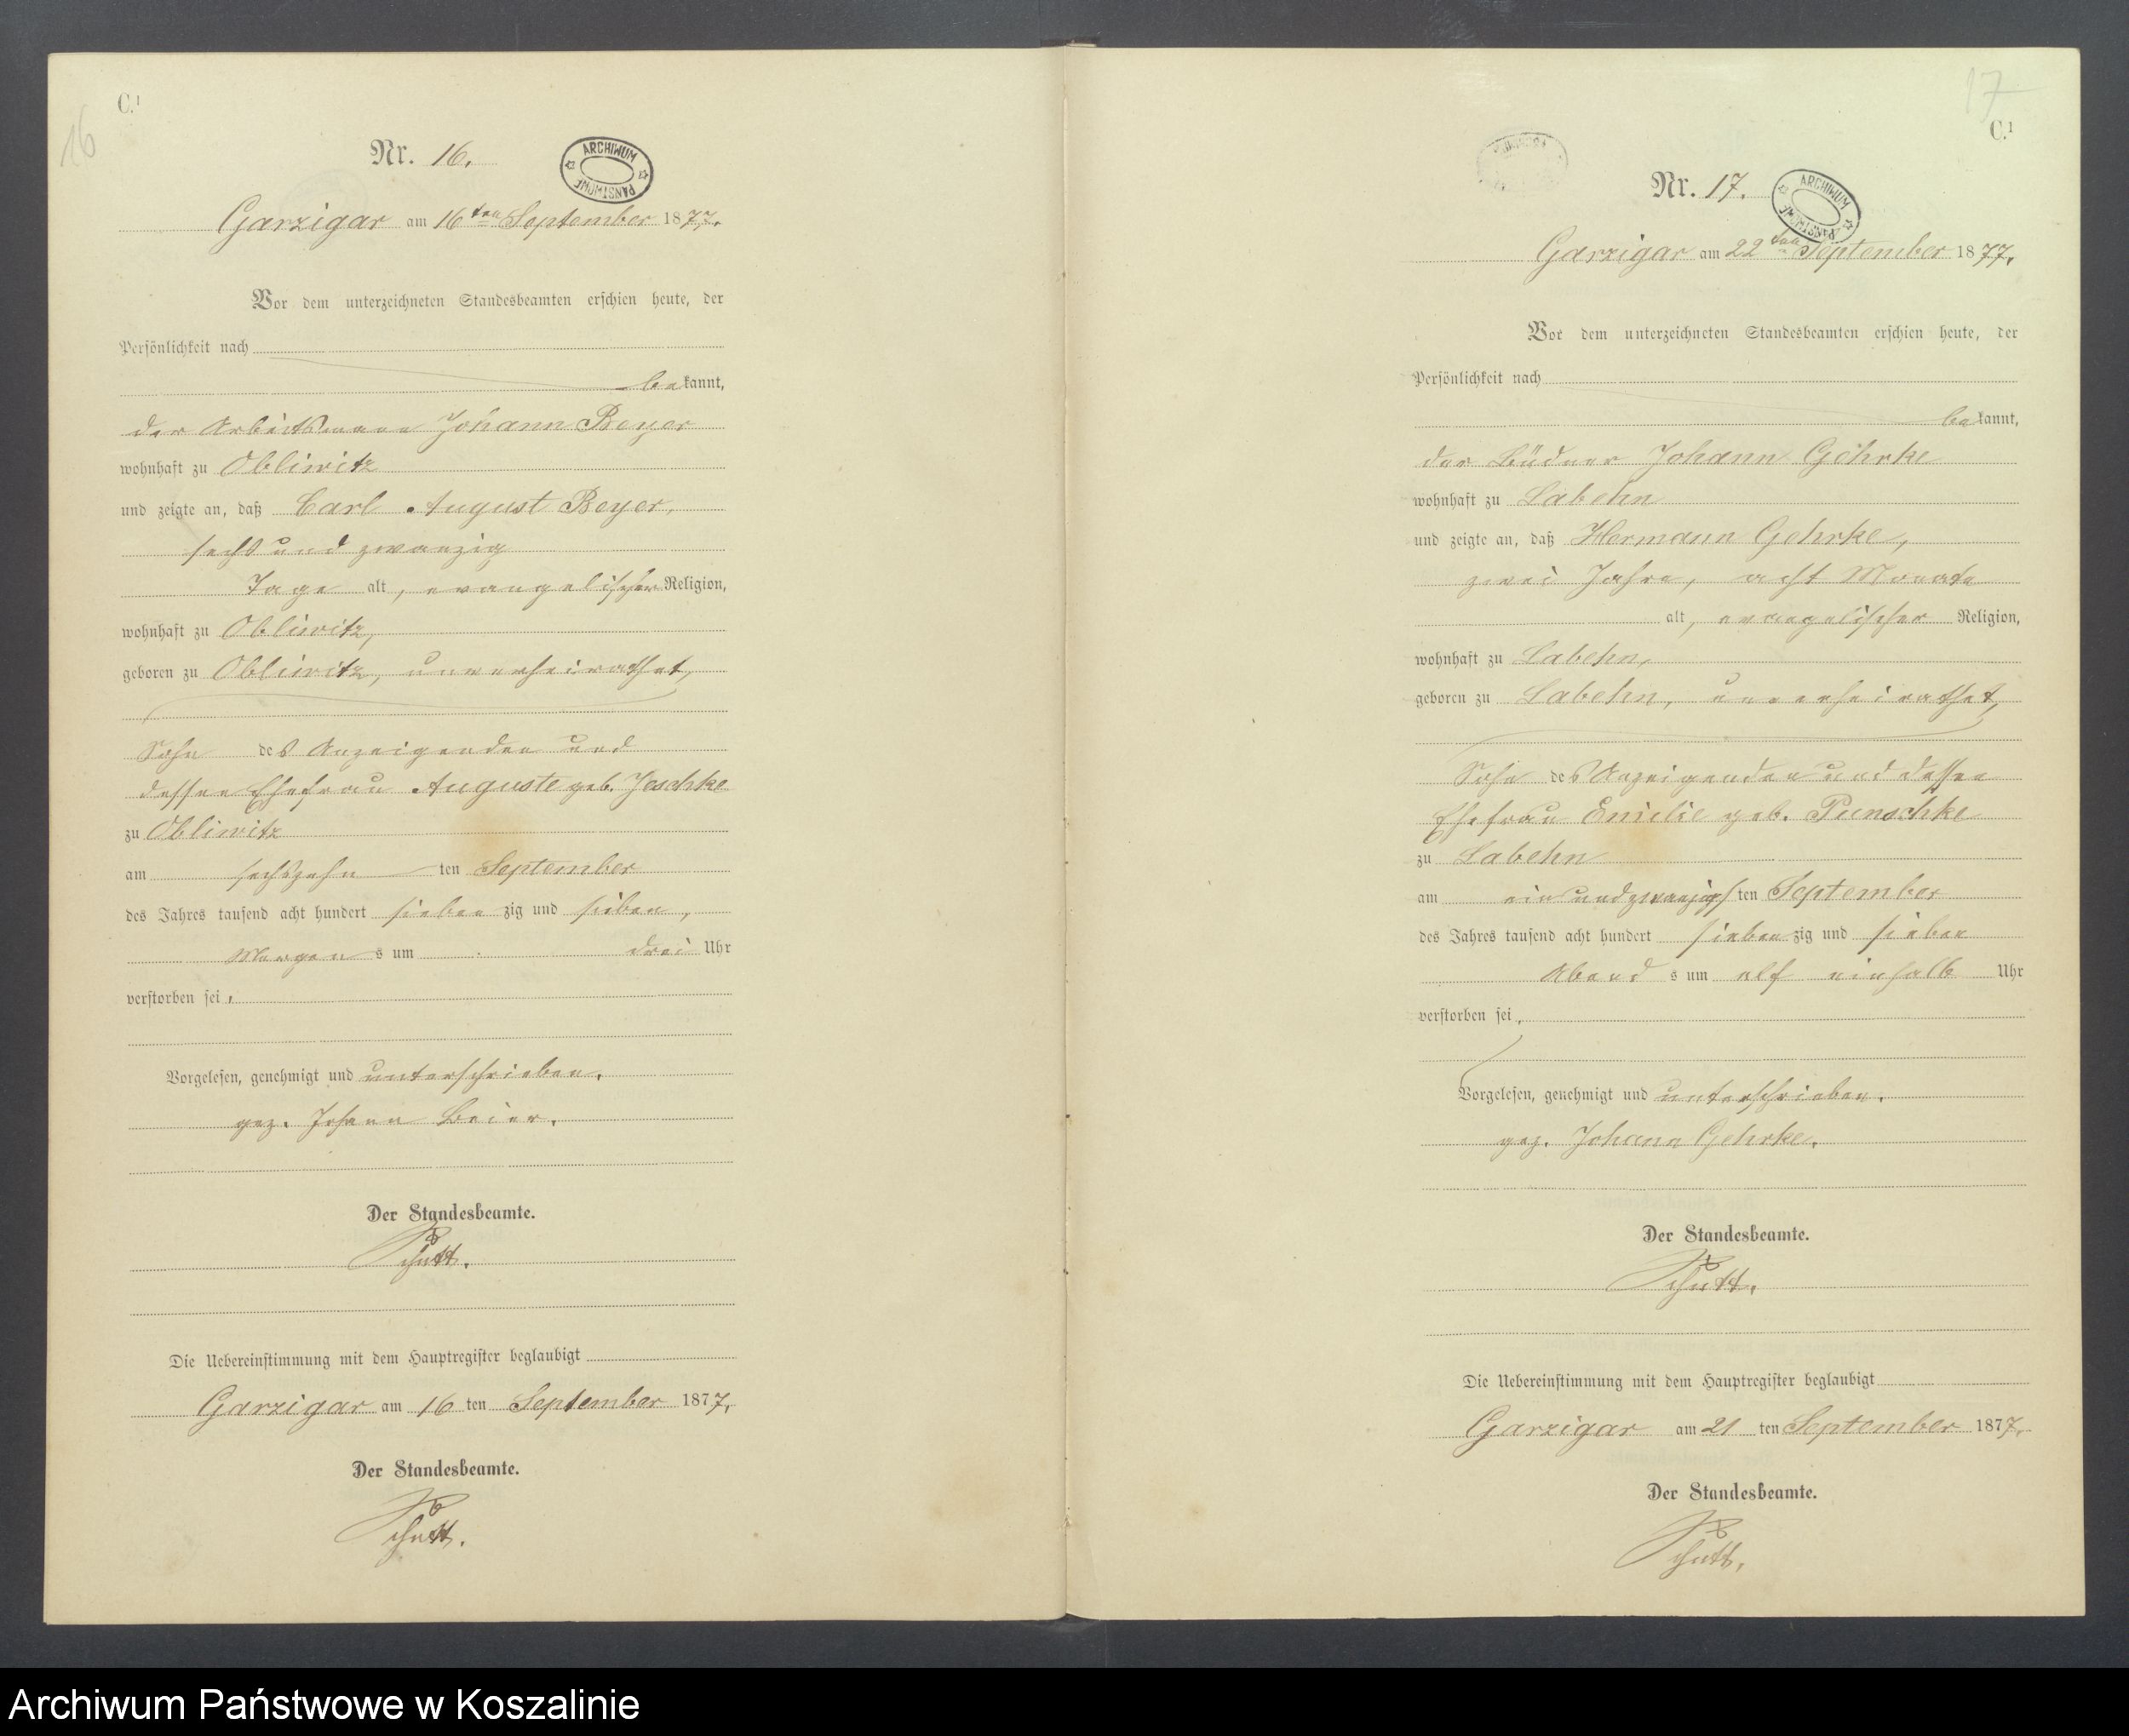 C.1
16
Nr. 16.
ARCHIWUM PAŃSTWOWE
Garzigar am 16ten September 1877.
Vor dem unterzeichneten Standesbeamten erschien heute, der
Persönlichkeit nach
bekannt,
der Arbeitsmann Johann Beyer
wohnhaft zu Obliwitz
und zeigte an, daß Carl August Beyer,
sechs und zwanzig
Tage alt, evangelischer Religion,
wohnhaft zu Obliwitz,
geboren zu Obliwitz, unverheirathet,
Sohn des Anzeigenden und
dessen Ehefrau Auguste geb. Jeschke
zu Obliwitz
am sechszehn ten September
des Jahres tausend acht hundert sieben zig und sieben,
Morgen s um drei Uhr
verstorben sei.
Vorgelesen, genehmigt und unterschrieben.
gez. Johann Beier.
Der Standesbeamte.
Schutt.
Die Uebereinstimmung mit dem Hauptregister beglaubigt
Garzigar am 16 ten September 1877.
Der Standesbeamte.
Schutt.
17
C.1
Nr. 17.
ARCHIWUM PAŃSTWOWE
Garzigar am 22ten September 1877.
Vor dem unterzeichneten Standesbeamten erschien heute, der
Persönlichkeit nach
bekannt,
der Büdner Johann Göhrke
wohnhaft zu Labehn
und zeigte an, daß Hermann Gehrke,
zwei Jahre, acht Monate
alt, evangelischer Religion,
wohnhaft zu Labehn,
geboren zu Labehn, unverheirathet,
Sohn des Anzeigenden und dessen
Ehefrau Emilie geb. Punschke
zu Labehn
am ein und zwanzigs ten September
des Jahres tausend acht hundert sieben zig und sieben
Abend s um elf einhalb Uhr
verstorben sei,
Vorgelesen, genehmigt und unterschrieben.
gez. Johann Gehrke.
Der Standesbeamte.
Schutt.
Die Uebereinstimmung mit dem Hauptregister beglaubigt
Garzigar am 21 ten September 1877.
Der Standesbeamte.
Schutt.
Archiwum Państwowe w Koszalinie